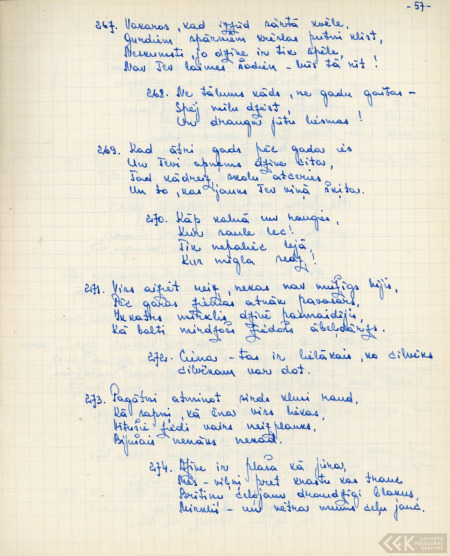 - 57 -
267. Vakaros, kad izzūd sārtā kvēle,
Gurdiem spārniem krēslas putni klīst,
Neskumsti, jo dzīve ir tik spēle,
Nav Tev laimes šodien - būs tā rīt!
268. Ne tālums kāds, ne gadu gaitas -
Spēj mūs dzēst,
Un draugu jūtu liesmas!
269. Kad ātri gads pēc gada ies
Un Tevi apņems dzīve cita,
Tad kādreiz skolu atceries
Un to, kas jauks Tev viņā šķita.
270. Kāp kalnā un raugies,
Kur saule lec!
Tik nepaliec lejā,
Kur migla sedz!
271. Viss aiziet reiz, nekas nav mūžīgs bijis,
Pēc garas ziemas atnāk pavasars,
Ik katrs mirklis dzīvē pasmaidījis,
Kā balti mirdzošs ziedošs ābeļzars.
272. Cieņa - tas ir lielākais, ko cilvēks
cilvēkam var dot.
273. Pagātni atminot sirds klusi raud,
Kā sapņi, kā ēnas viss liekas,
Vītušie ziedi vairs neizplauks,
Bijušais nenāks nekad.
274. Dzīve ir plaša kā jūra,
Mēs - viļņi pret krastu kas trauc
Brītiņu ceļojam draudzīgi blakus,
Mirklis - un vētra mums ceļu jauc.
LATVIEŠU
FOLKLORAS
KRĀTUVE